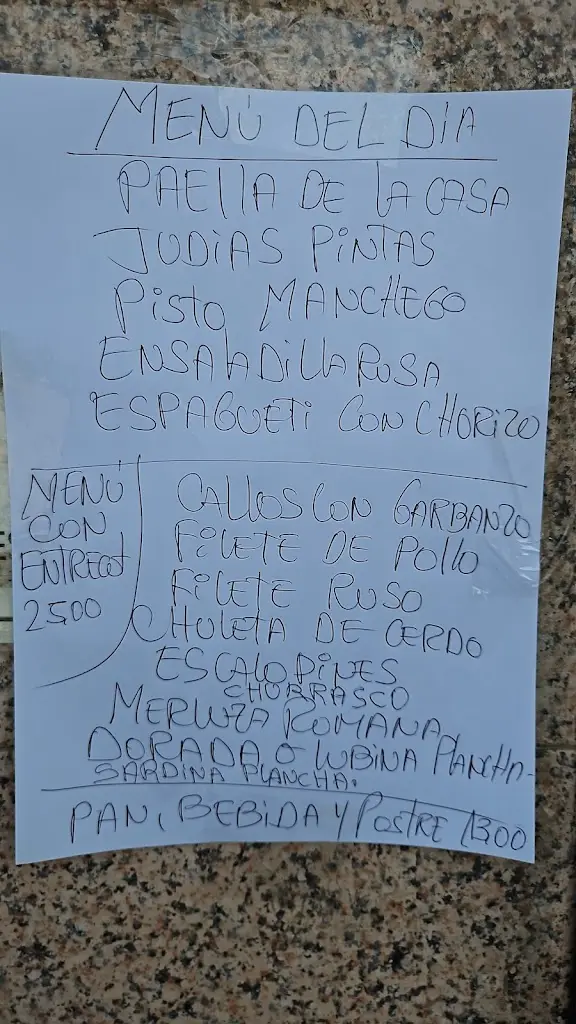 MENÚ DEL DIA
PAELLA DE LA CASA
JUDIAS PINTAS
PISTO MANCHEGO
ENSALADILLA RUSA
ESPAGUETI CON CHORIZO
MENÚ
CON
ENTRECOT
25,00
CALLOS CON GARBANZO
FILETE DE POLLO
FILETE RUSO
CHULETA DE CERDO
ESCALOPINES
CHURRASCO
MERLUZA ROMANA
DORADA O LUBINA PLANCHA
SARDINA PLANCHA.
PAN, BEBIDA Y POSTRE 1300